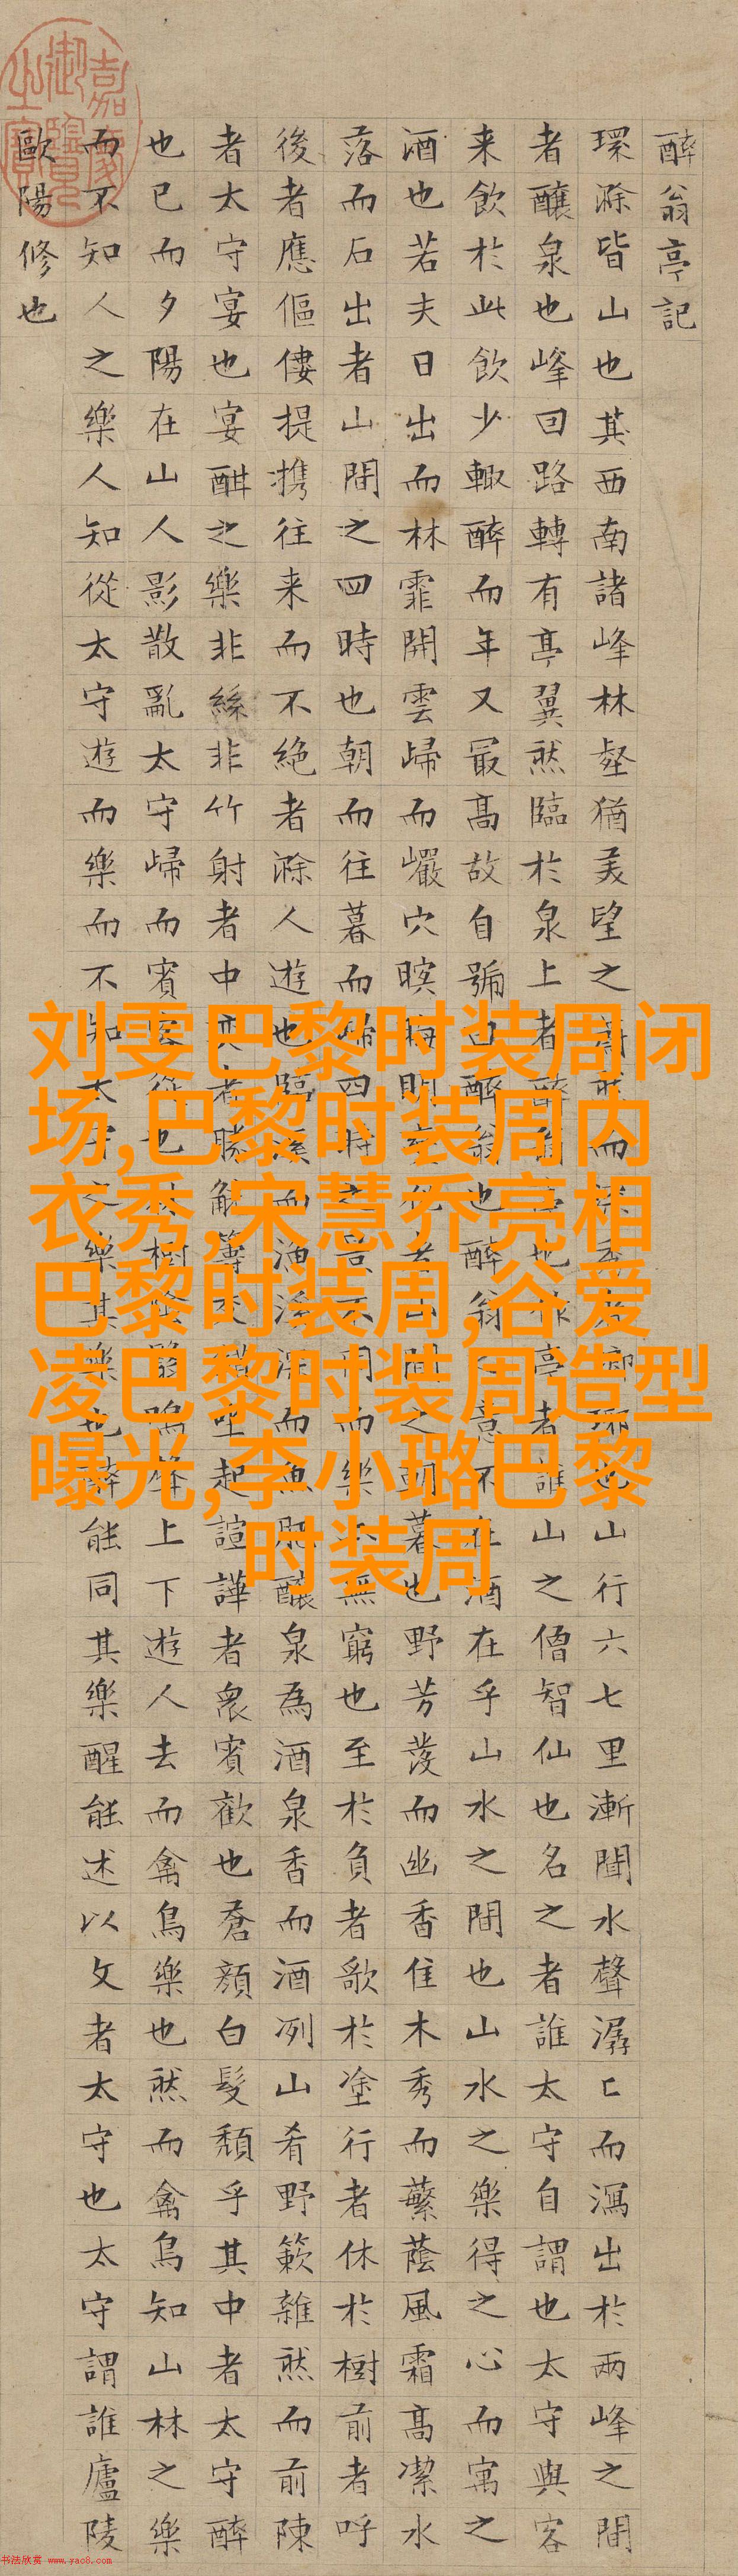 醉翁亭記
環滁皆山也其西南諸峰林壑猶美望之而山行六七里漸聞水聲潺〻而瀉出於兩峰之間
者釀泉也峰回路轉有亭翼然臨於泉上者醉也亭者誰山之僧智仙也名之者誰太守自謂也太守與客
来飲於此飲少輒醉而年又最高故自號曰醉翁也醉翁意不在酒在乎山水之間也山水之樂得之心而寓之
酒也若夫日出而林霏開雲歸而巖穴暝晦明間之朝暮也野芳發而幽香佳木秀而蘩蔭風霜高潔水
落而石出者山間之四時也朝而往暮而歸四時不同而樂無窮也至於負者歌於塗行者休於樹前者呼
後者應傴僂提攜往来而不絶者滁人遊也臨溪而漁深而魚肥釀泉為酒泉香而酒冽山肴野蔌雜然而前陳
者太守宴也宴酣之樂非絲非竹射者中奕者勝觥籌坐起諠譁者衆賓歡也蒼顔白髮頹乎其中者太守醉
也已而夕陽在山人影散亂太守歸而賓客從也樹陰鳴聲上下遊人去而禽鳥樂也然而禽鳥知山林之樂
而不知人之樂人知從太守遊而樂而不知太守之樂其樂也醉能同其樂醒能述以文者太守也太守謂誰廬陵
歐陽修也
刘雯巴黎时装周闭
场,巴黎时装周内
衣秀,宋慧乔亮相
巴黎时装周,谷爱
凌巴黎时装周造型
曝光,李小璐巴黎
时装周
嘉慶御覽之寶
书法欣赏 www.yac8.com